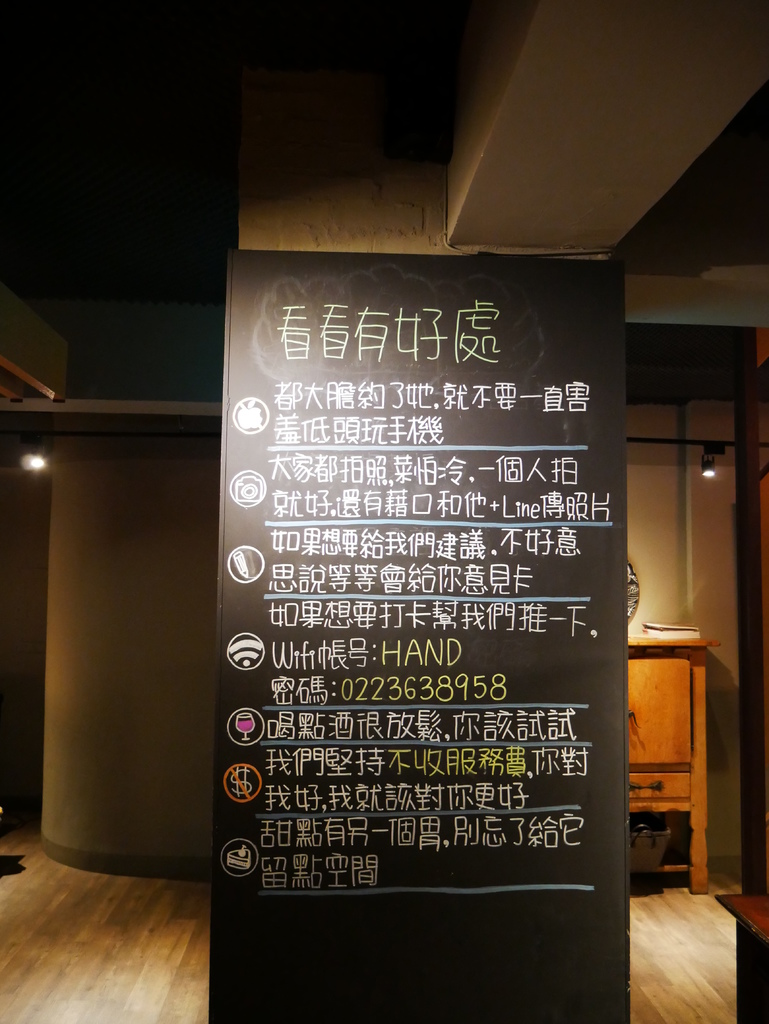 看看有好處
都大膽約了她,就不要一直害
羞低頭玩手機
大家都拍照,菜怕冷,一個人拍
就好.還有藉口和他+Line傳照片
如果想要給我們建議,不好意
思說等等會給你意見卡
如果想要打卡幫我們推一下,
Wifi帳号:HAND
密碼:0223638958
喝點酒很放鬆,你該試試
我們堅持不收服務費,你對
我好,我就該對你更好
甜點有另一個胃,別忘了給它
留點空間